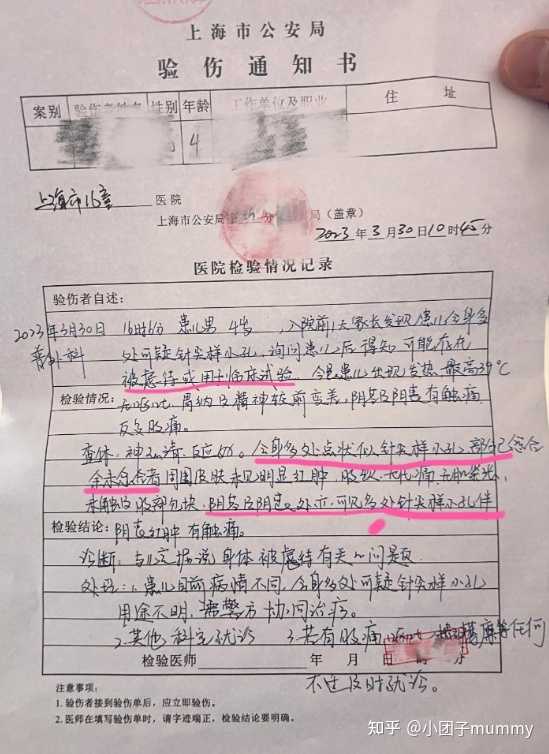 上海市公安局
验伤通知书
案别 验伤者姓名 性别 年龄 工作单位及职业 住址
4
上海市儿童 医院
上海市公安局 分局（盖章）
2023年3月30日10时45分
医院检验情况记录
验伤者自述：
2023年3月30日 16时6分 患儿男 4岁，入院前1天家长发现患儿全身多
普外科 处可疑针尖样小孔，询问患儿后得知可能存在
被虐待或用于临床试验。今患儿出现发热，最高39℃
检验情况： 无呕吐，胃纳及精神较前变差，阴茎及阴囊有触痛
反复腹痛。
查体：神志清，反应好。全身多处点状似针尖样小孔，部分已愈合
余未愈合者周围皮肤未见明显红肿，腹软，无压痛
未触及腹部包块，阴茎及阴囊处亦可见多处针尖样小孔伴
检验结论： 阴茎红肿 有触痛。
诊断：与 据说身体被虐待有关的问题
处理：1.患儿目前病情不同，全身多处可疑针尖样小孔
用途不明，需警方协同治疗。
2.其他科室就诊 3.若有腹痛 等任何
检验医师 年 月
不适及时就诊。
注意事项：
1. 验伤者接到验伤单后，应立即验伤。
2. 医师在填写验伤单时，请字迹端正，检验结论要明确。
知乎 @小团子mummy